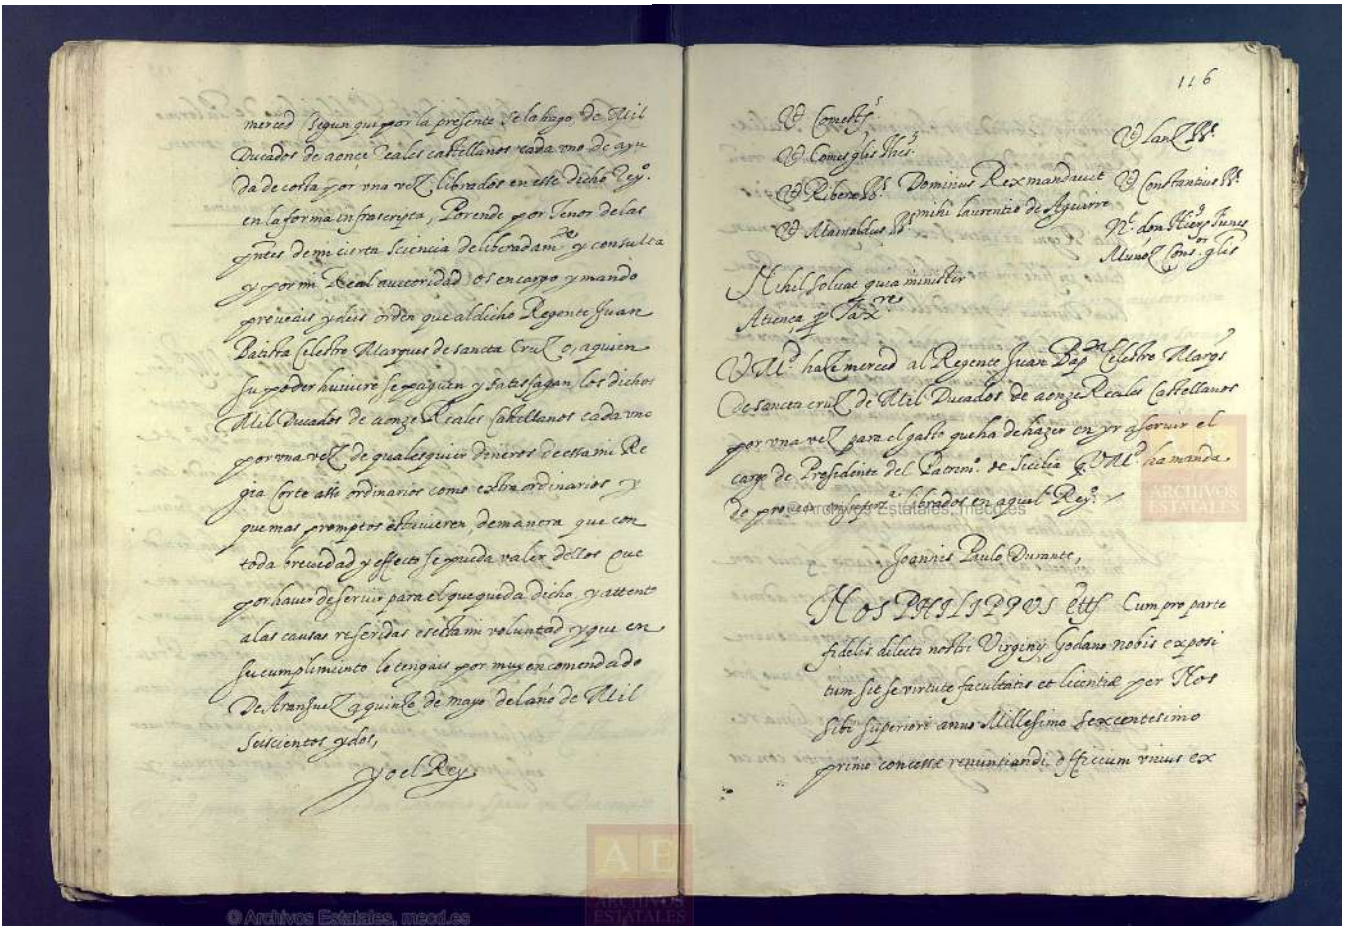 merced segun que por la presente se la hago, de Mil
Ducados de aonce reales castellanos cada vno de ayu
da de costa por vna vez librados en esse dicho Reyº.
en la forma infrascripta, Porende por Tenor de las
pntes de mi cierta sciencia deliberadamte y consulta
y por mi Real auctoridad os encargo y mando
proueais y deis orden que al dicho Regente Juan
Batista Celestre Marques de sancta Cruz o, a quien
su poder huuiere se paguen y satisfagan, los dichos
Mil Ducados de aonze Reales Castellanos cada vno
por vna vez de qualesquier dineros de essa mi Re
gia corte assi ordinarios como extraordinarios y
que mas promptos estuuieren, de manera que con
toda breuedad y effecto se pueda valer dellos que
por hauer de seruir para el que queda dicho, y attento
a las causas referidas es esta mi voluntad, y que en
su cumplimiento lo tengais por muy encomendado
De Aranjuez a quinze de mayo del año de Mil
seiscientos y dos,
yo el Rey
116
Vt Comes
Vt Lanz Rs.
Vt Comes glis Thes.
Vt Ribera Rs. Dominus Rex mandauit Vt Constantius Rs.
mihi laurentio de Aguirre
Vt Mainoldus Rs.
Nt. don Hierº funes
Muñoz Consor. glis
Nihil soluat quia minister
Atiença p Taxre
V Md. haze merced al Regente Juan Bapta Celestre Marqs
de sancta cruz de Mil Ducados de aonze Reales Castellanos
por vna vez para el gasto que ha de hazer en yr a seruir el
cargo de Presidente del Patrimº. de Sicilia q V Md. ha manda
do proueer librados en aquel Reyº.
© Archivos Estatales, mecd.es
ARCHIVOS
ESTATALES
Joannis Paulo Durante,
NOS PHILIPPVS etts Cum pro parte
fidelis dilecti nostri Virginy Godano nobis exposi
tum sit se virtute facultatis et licentiæ per Nos
sibi superiori anno Millesimo sexcentesimo
primo concessæ renuntiandi officium vnius ex
A E
ARCHIVOS
ESTATALES
© Archivos Estatales, mecd.es